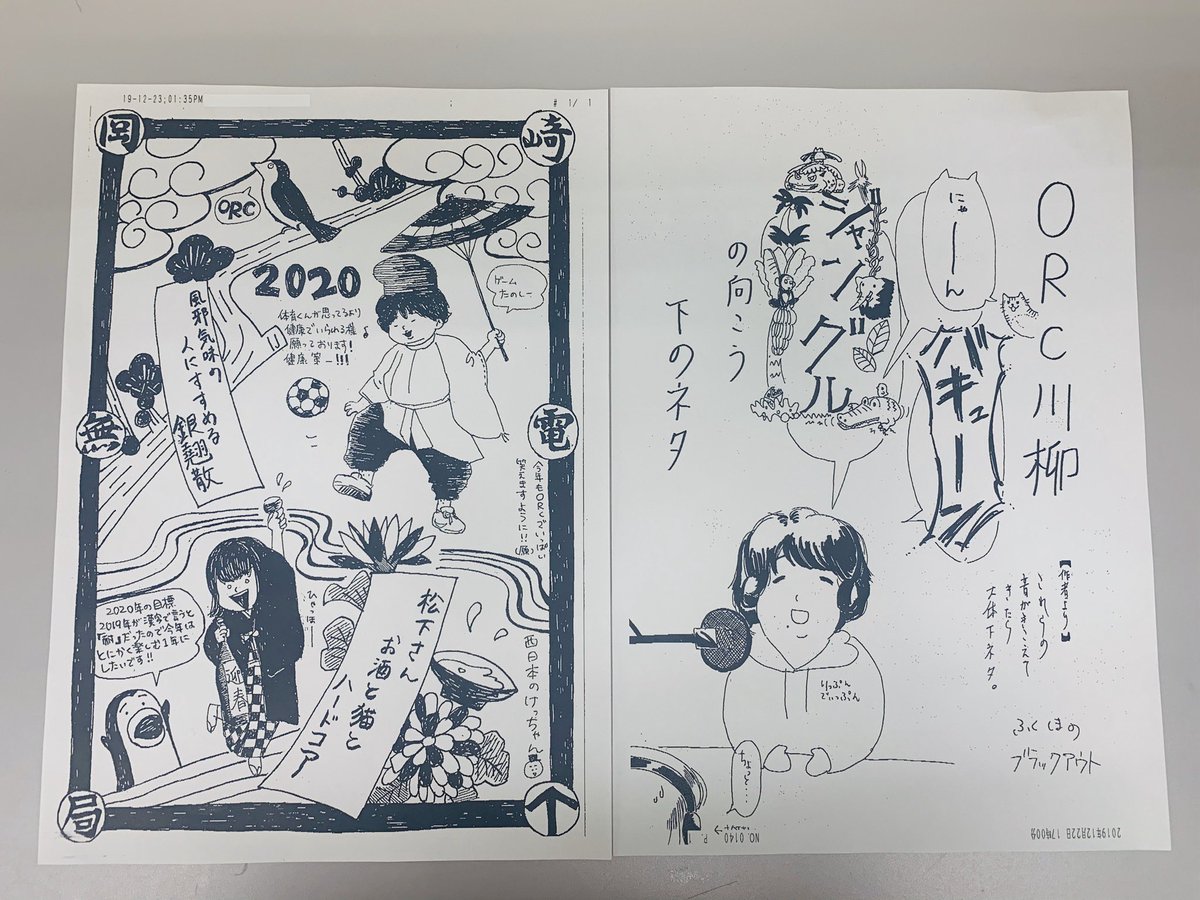 19-12-23;01:35PM
# 1/ 1
岡
崎
無
電
局
ORC
2020
体育くんが思ってるより
健康でいられる様
願っております!
健康第一!!!
ゲーム
たのしー
風邪気味の
人にすすめる
銀翹散
今年もORCでいっぱい
笑えますように!!(願)
ひゃっほー
2020年の目標
2019年が漢字で言うと
『耐』だったので今年は
とにかく楽しむ1年に
したいです!!
迎春
松下さん
お酒と猫と
ハードコア
西日本のけっちゃん
ORC川柳
にゃーん
バキューン
ジャングル
の向こう
下のネタ
【作者より】
これらの
音がきこえて
きたら
大体下ネタ。
りっぷん
でいっぷん
ちょっと…
ふくほの
ブラックアウト
NO. 0140
P.
2019年12月22日 17時00分